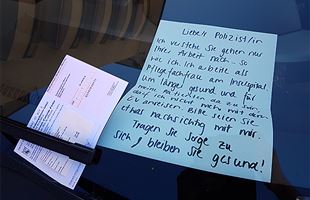 Liebe/r Polizist/in
Ich verstehe Sie gehen nur
Ihrer Arbeit nach... so
wie ich. Ich arbeite als
Pflegefachfrau am Inselspital.
Um länger gesund und für
meine Patienten da zu sein,
darf ich nicht mehr mit dem
ÖV anreisen. Bitte seien Sie
etwas nachsichtig mit mir.
Tragen Sie Sorge zu
sich, bleiben Sie gesund!